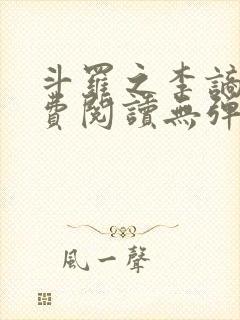 斗羅之李謫
費閱讀無彈
風一聲